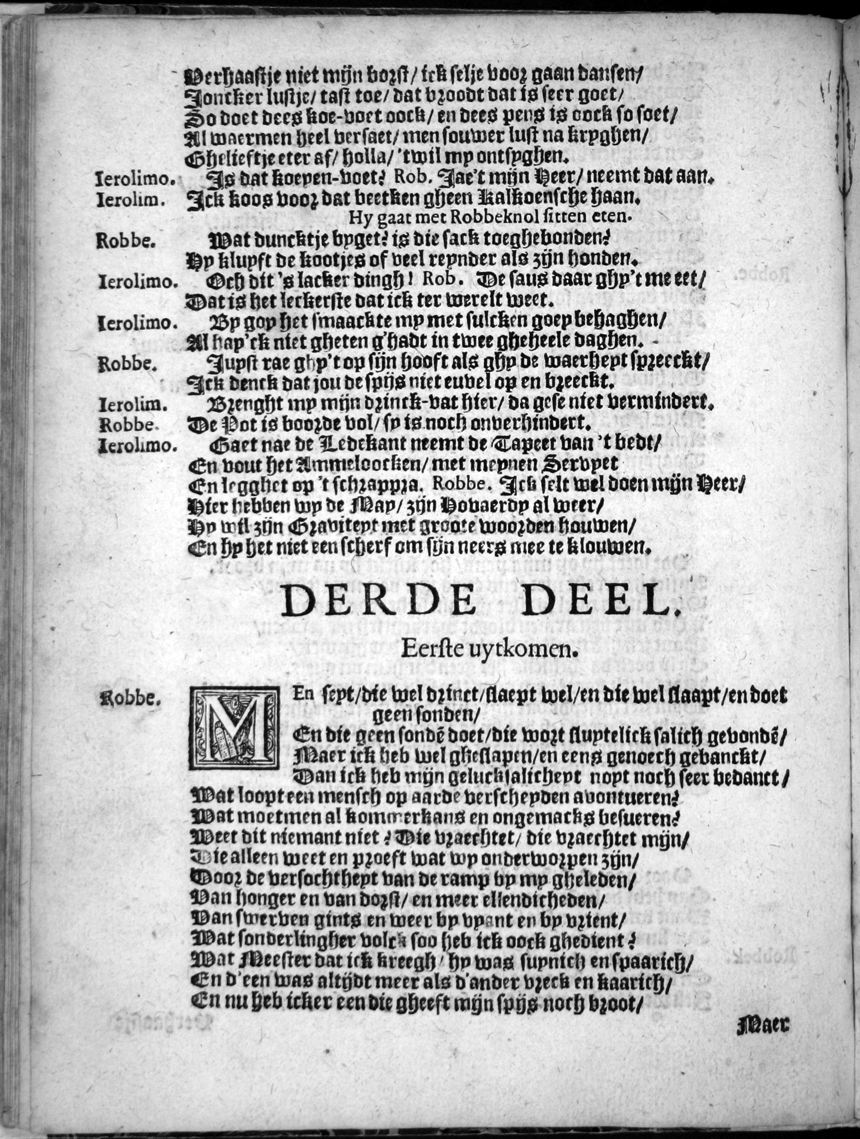 Verhaastje niet mijn borst/ ick selje voor gaan dansen/
Joncker lustje/ tast toe/ dat broodt dat is seer goet/
So doet dees koe-voet oock/ en dees pens is oock so soet/
Al waermen heel versaet/ men souwer lust na kryghen/
Ghelieftje eter af/ holla/ 'twil my ontsyghen.
Ierolimo. Is dat koeyen-voet? Rob. Jae't mijn Heer/ neemt dat aan.
Ierolim. Ick koos voor dat beetken gheen Kalkoensche haan.
Hy gaat met Robbeknol sitten eten.
Robbe. Wat duncktje byget? is die sack toeghebonden?
Hy kluyft de kootjes of veel reynder als zijn honden.
Ierolimo. Och dit 's lacker dingh! Rob. De saus daar ghy't me eet/
Dat is het leckerste dat ick ter werelt weet.
Ierolimo. By gop het smaackte my met sulcken goey behaghen/
Al hap'ck niet gheten g'hadt in twee gheheele daghen.
Robbe. Juyst rae ghy't op sijn hooft als ghy de waerheyt spreeckt/
Ick denck dat jou de spijs niet euvel op en breeckt.
Ierolim. Brenght my mijn drinck-vat hier/ da gese niet vermindert.
Robbe. De Pot is boorde vol/ sy is noch onverhindert.
Ierolimo. Gaet nae de Ledekant neemt de Tapeet van 't bedt/
En vout het Ammeloocken/ met meynen Servyet
En legghet op 't schrappra. Robbe. Ick selt wel doen mijn Heer/
Hier hebben wy de May/ zijn Hovaerdy al weer/
Hy wil zijn Graviteyt met groote woorden houwen/
En hy het niet een scherf om sijn neers mee te klouwen.
DERDE DEEL.
Eerste uytkomen.
Robbe. MEn seyt/die wel drinct/slaept wel/en die wel slaapt/en doet
geen sonden/
En die geen sondē doet/die wort sluytelick salich gevondē/
Maer ick heb wel gheslapen/en eens genoech gebanckt/
Dan ick heb mijn gelucksalicheyt noyt noch seer bedanct/
Wat loopt een mensch op aarde verscheyden avontueren?
Wat moetmen al kommerkans en ongemacks besueren?
Weet dit niemant niet? Die vraechtet/ die vraechtet mijn/
Die alleen weet en proeft wat wy onderworpen zijn/
Door de versochtheyt van de ramp by my gheleden/
Van honger en van dorst/ en meer ellendicheden/
Van swerven gints en weer by vyant en by vrient/
Wat sonderlingher volck soo heb ick oock ghedient?
Wat Meester dat ick kreegh/ hy was suynich en spaarich/
En d'een was altijdt meer als d'ander vreck en kaarich/
En nu heb icker een die gheeft mijn spijs noch broot/
Maer